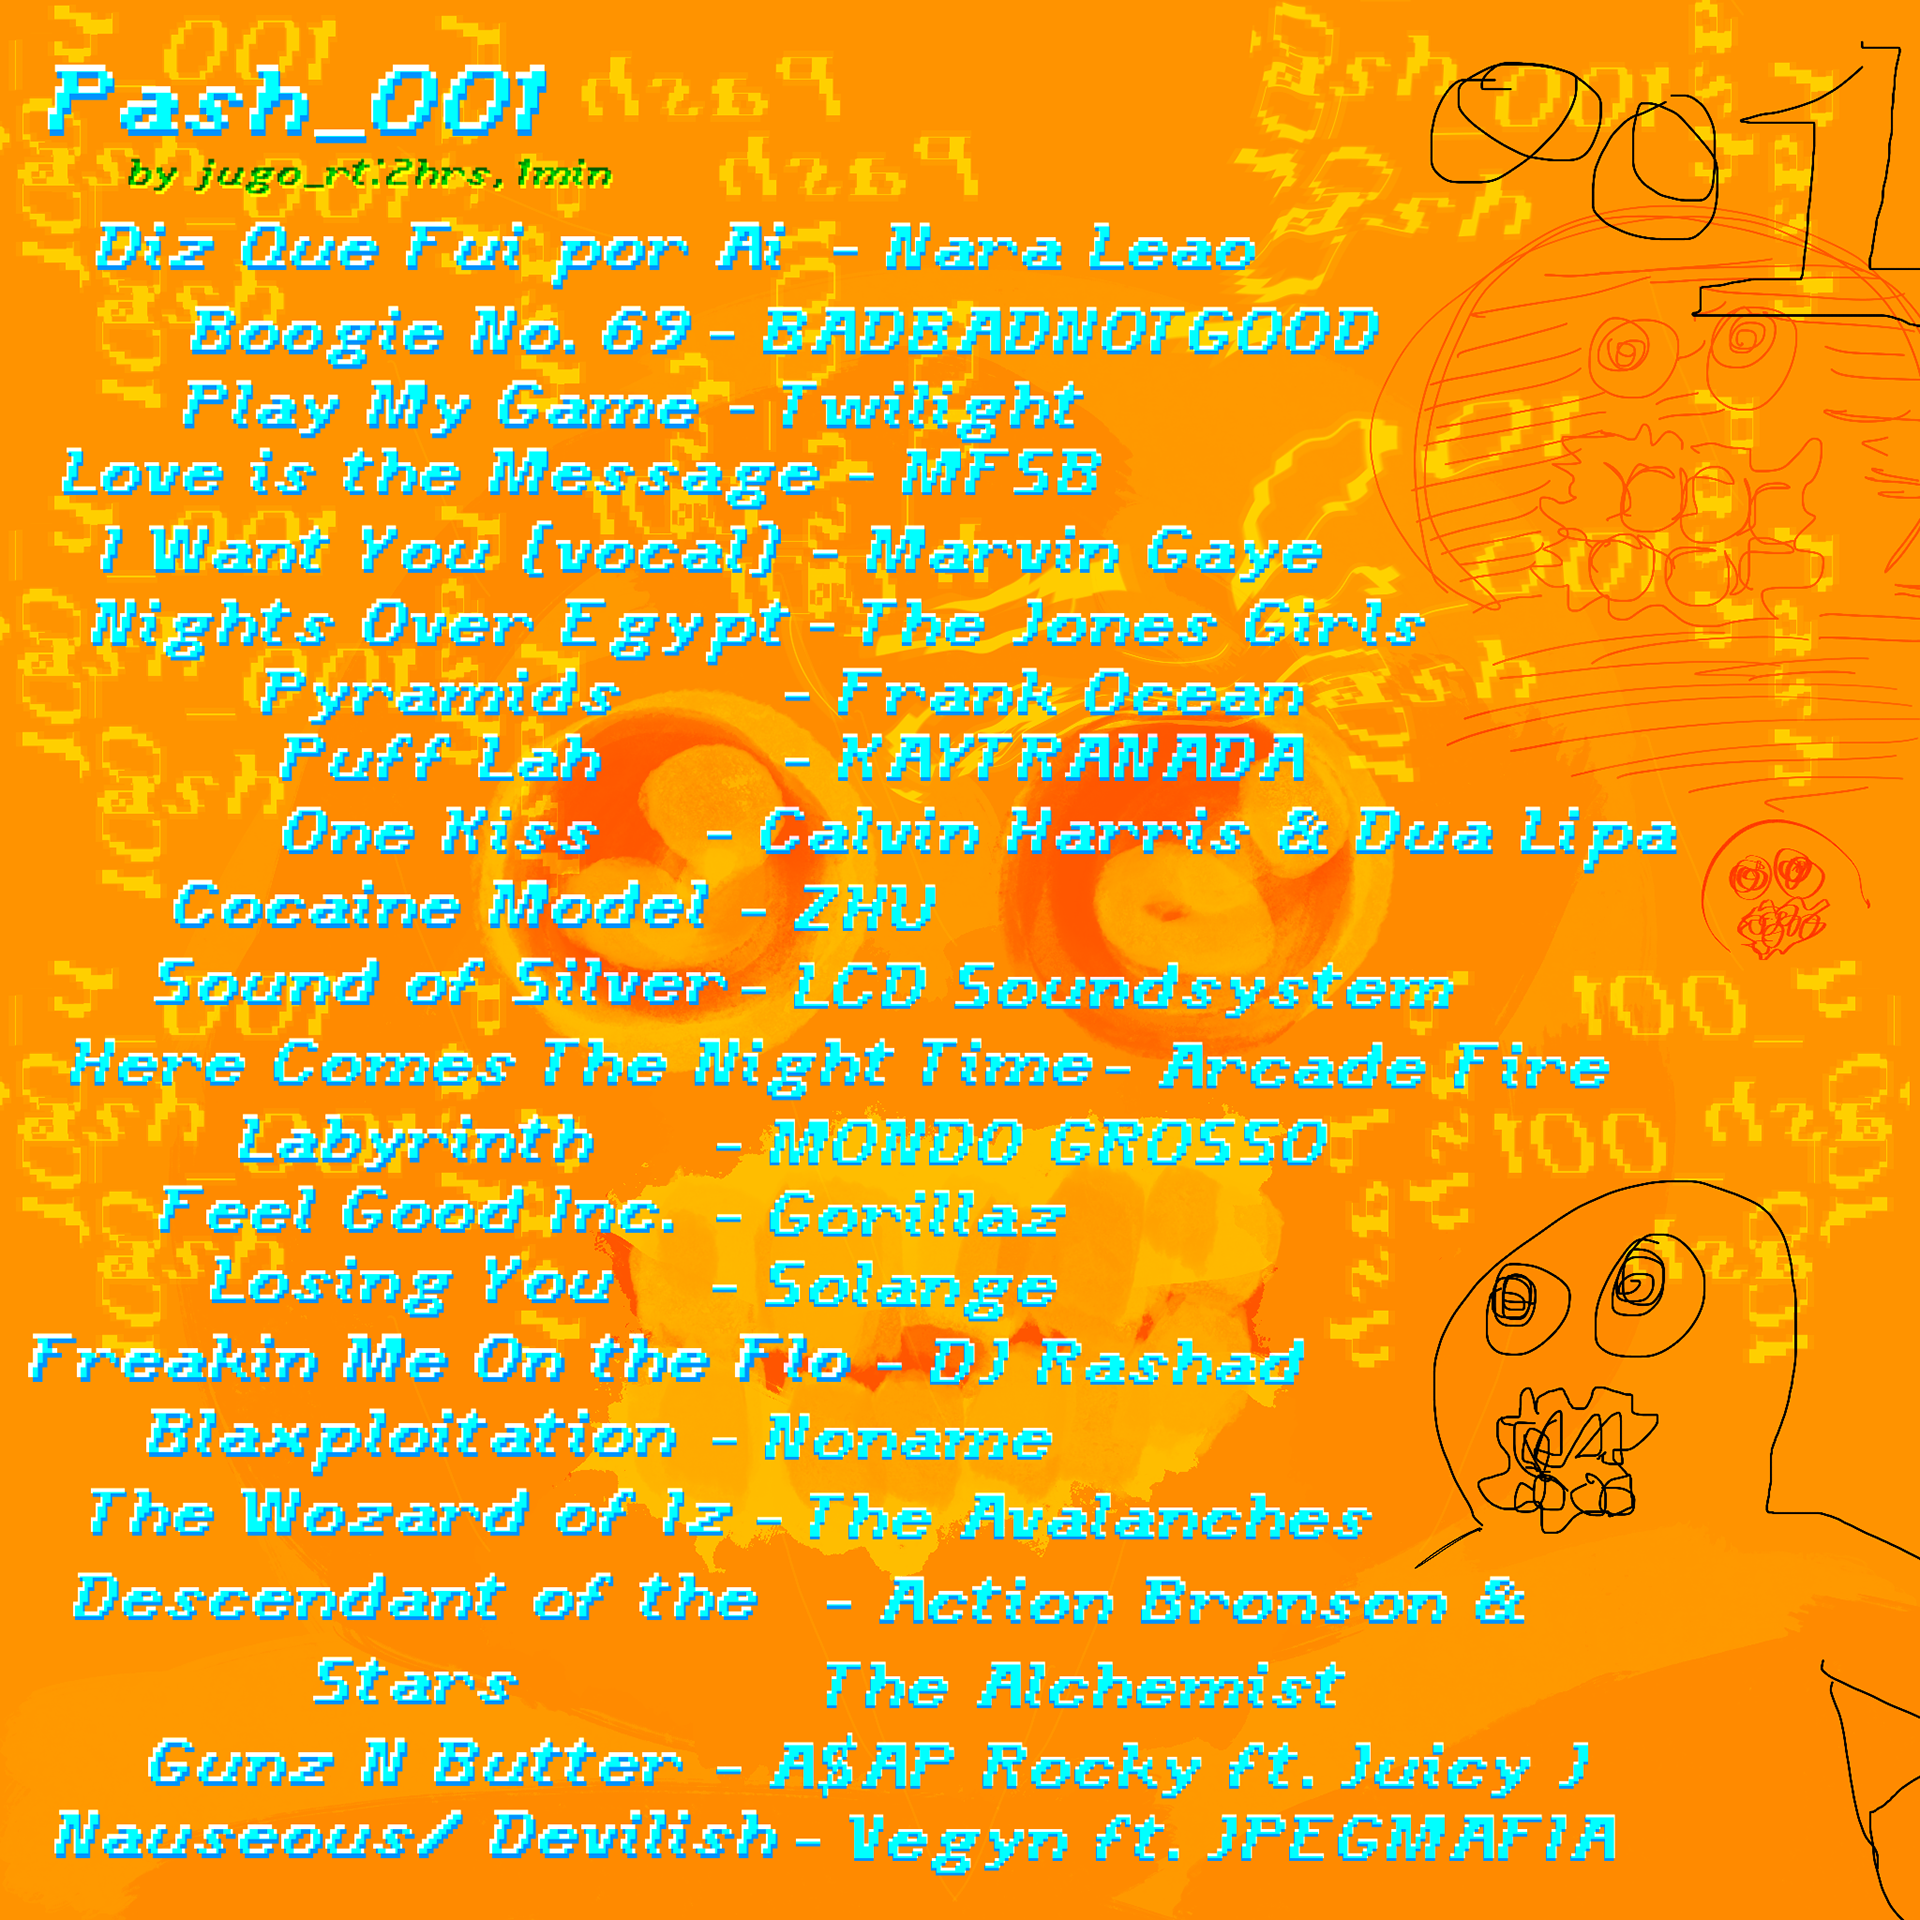 Pash_001
by jugo_rt:2hrs, 1min
Diz Que Fui por Ai - Nara Leao
Boogie No. 69 - BADBADNOTGOOD
Play My Game - Twilight
Love is the Message - MFSB
I Want You (vocal) - Marvin Gaye
Nights Over Egypt - The Jones Girls
Pyramids - Frank Ocean
Puff Lah - KAYTRANADA
One Kiss - Calvin Harris & Dua Lipa
Cocaine Model - ZHU
Sound of Silver - LCD Soundsystem
Here Comes The Night Time - Arcade Fire
Labyrinth - MONDO GROSSO
Feel Good Inc. - Gorillaz
Losing You - Solange
Freakin Me On the Flo - DJ Rashad
Blaxploitation - Noname
The Wozard of Iz - The Avalanches
Descendant of the - Action Bronson &
Stars The Alchemist
Gunz N Butter - A$AP Rocky ft. Juicy J
Nauseous/ Devilish - Vegyn ft. JPEGMAFIA
001